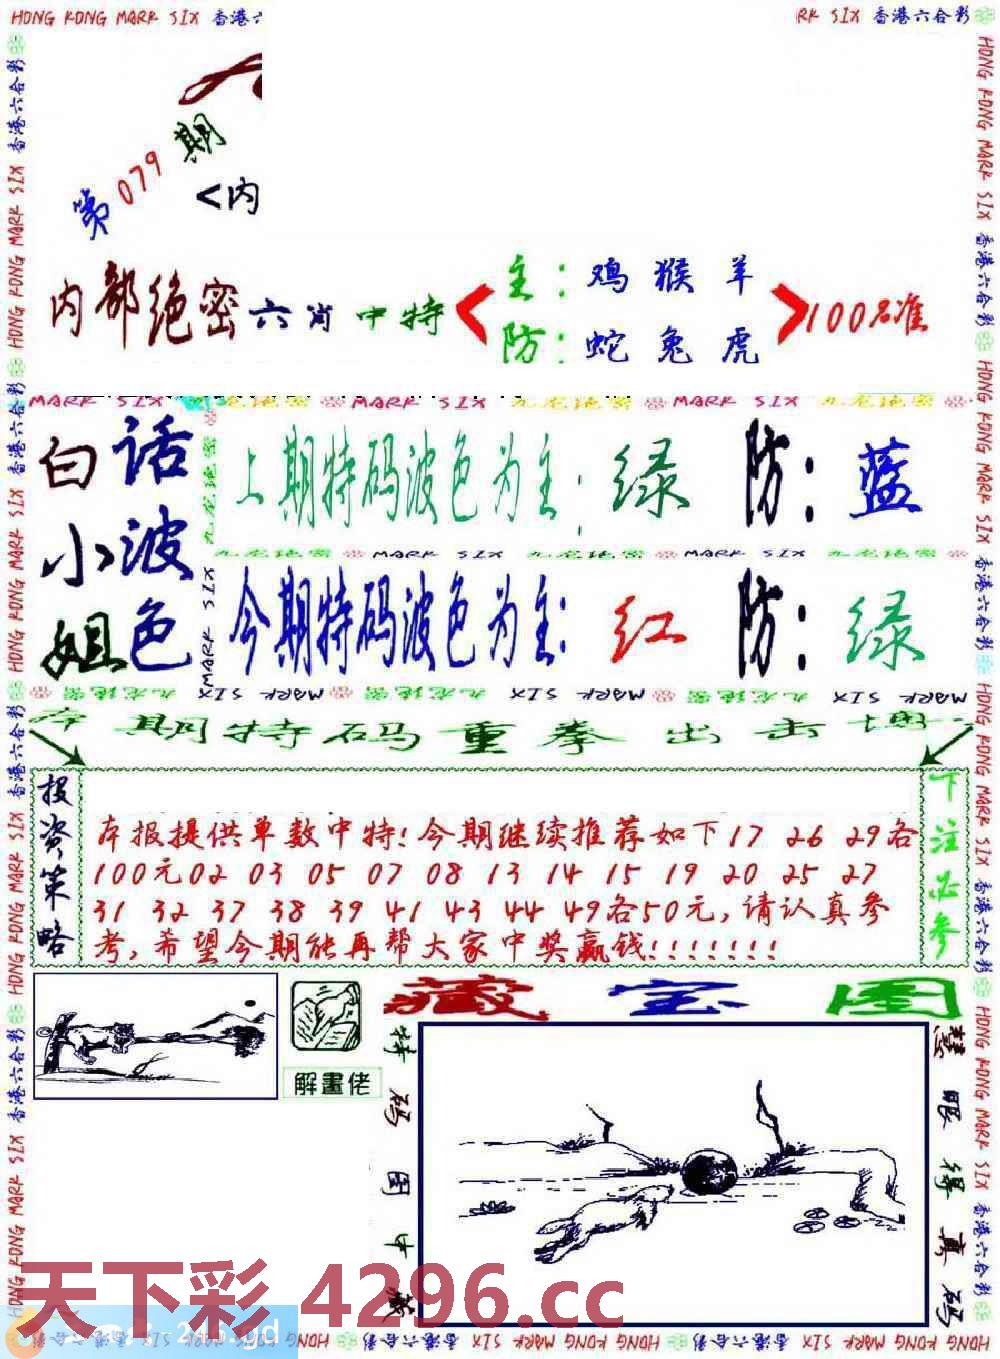 HONG KONG MARK SIX 香港六合彩
第079期
<内
内部绝密六肖中特
主：鸡 猴 羊
防：蛇 兔 虎
100%准
MARK SIX 九龙绝密 MARK SIX 九龙绝密 MARK SIX 九龙绝密
白话
小波
姐色
上期特码波色为主：绿 防：蓝
九龙绝密 MARK SIX 九龙绝密 MARK SIX 九龙绝密
今期特码波色为主：红 防：绿
本期特码重拳出击
投资策略
本报提供单数中特!今期继续推荐如下17 26 29各
100元02 03 05 07 08 13 14 15 19 20 25 27
31 32 37 38 39 41 43 44 49各50元,请认真参
考,希望今期能再帮大家中奖赢钱!!!!!!!
下注必参
藏宝图
解畫佬
特码图中藏
慧眼得真码
天下彩 4296.cc
HONG KONG MARK SIX 香港六合彩